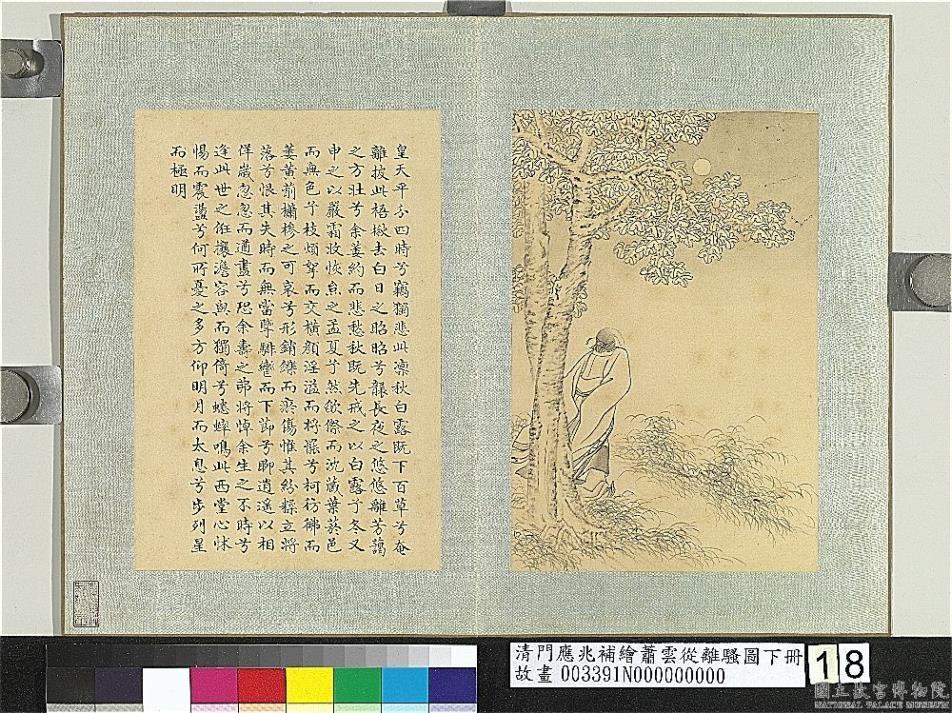 皇天平分四時兮竊獨悲此凜秋白露既下百草兮奄
離披此梧楸去白日之昭昭兮襲長夜之悠悠離芳藹
之方壯兮余萎約而悲愁秋既先戒之以白露兮冬又
申之以嚴霜收恢炱之孟夏兮然欿傺而沈藏葉菸邑
而無色兮枝煩挐而交橫顏淫溢而將罷兮柯彷彿而
萎黃萷櫹槮之可哀兮形銷鑠而瘀傷惟其紛糅立將
落兮恨其失時而無當擥騑轡而下節兮聊逍遙以相
佯歲忽忽而遒盡兮恐余壽之弗將悼余生之不時兮
逢此世之俇攘澹容與而獨倚兮蟋蟀鳴此西堂心怵
惕而震盪兮何所憂之多方仰明月而太息兮步列星
而極明
清門應兆補繪蕭雲從離騷圖下冊
故畫 003391N000000000
18
國立故宮博物院
NATIONAL PALACE MUSEUM